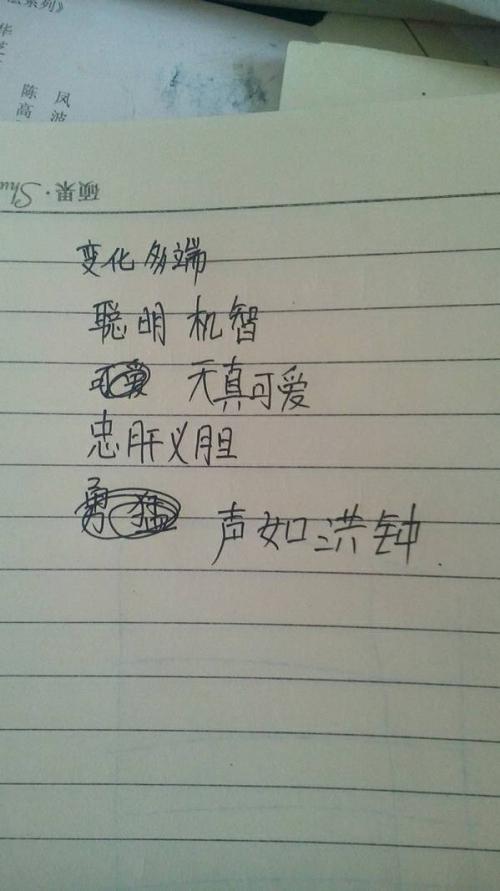 系列》
华
陈 凤
高 波
硕果·Shu
变化多端
聪明机智
可爱 天真可爱
忠肝义胆
勇猛 声如洪钟